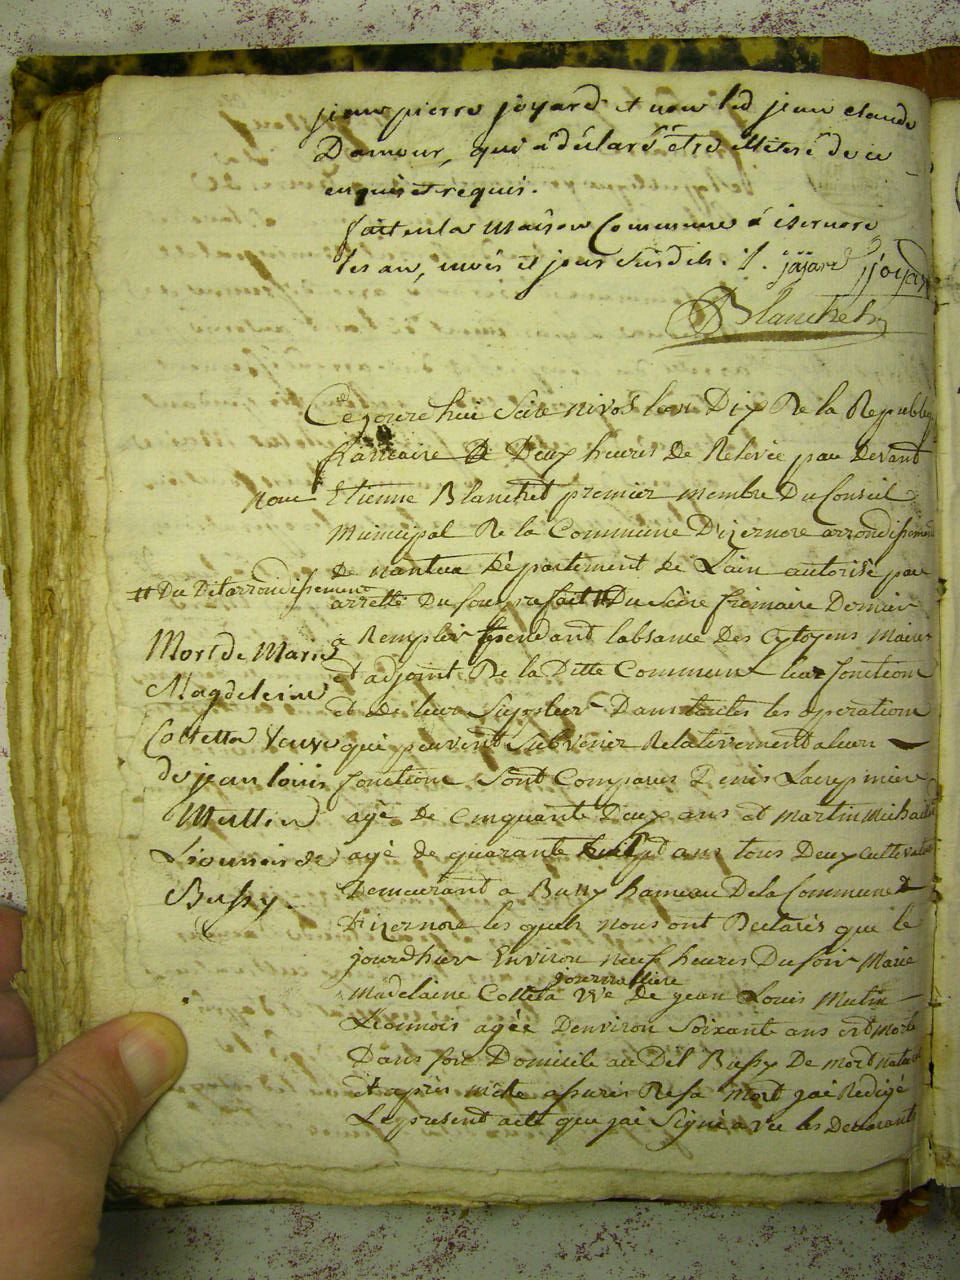 jean pierre joyard et non led jean claude
Damour, qui a déclaré être illiteré de ce
enquis et requis.
fait en la Maison Commune d'isernore
les an, mois et jour susdits. J. jojard J joyard
Blanchet
Cejourdhui Seize nivos lan Dix De la Republiq
francaise à Deux heures De Relevée par Devant
nous Etienne Blanchet premier membre Du Conseil
Municipal De la Commune D'izernore arrondissement
De nantua Département de Lain autorisé par
# Du Dit arrondissement
arretté Du sous prefait # Du Seize frimaire Dernier
à Remplir pendant labsance Des Cytoyens maire
et adjoint De la Ditte Commune leur fonctions
et de leur Suposleer Dans toutes les operations
qui peuvent Subvenir Relativement a leur
fonctions Sont Comparus Denis Lacrepiniere
agé de Cinquante Deux ans et Martin Michaillard
agé de quarante huit ans tous Deux cultivateurs
Demeurant a Bussy hameau De la Commune
D'izernore les quels nous ont Declarés que le
jourdhier Environ neuf heures Du soir Marie
journalliere
Madelaine Colleta Ve de jean Louis Mutin
Leonnois agée Denviron Soixante ans est morte
Dans son Domicile au Dit Bussy De mort naturel
et après mêtre assuré De sa mort jai Redigé
Le present acte que jai Signé avec les Declarants
Mort de Marie
Magdeleine
Colletta Veuve
de jean louis
Muttin
Lionnois de
Bussy.